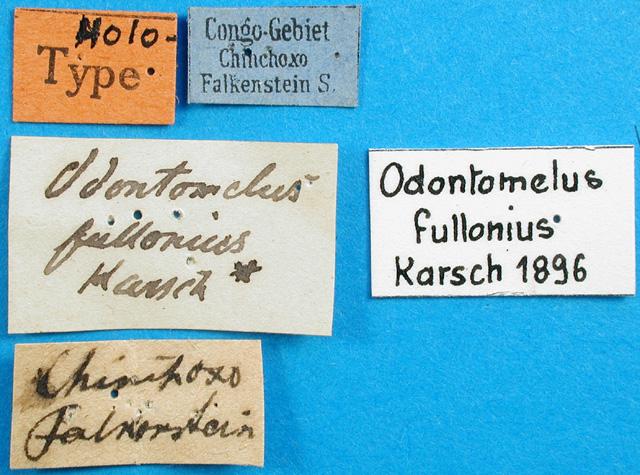 Holo-
Type.
Congo-Gebiet
Chinchoxo
Falkenstein S.
Odontomelus
fullonius
Karsch *
Odontomelus
fullonius
Karsch 1896
Chinchoxo
Falkenstein